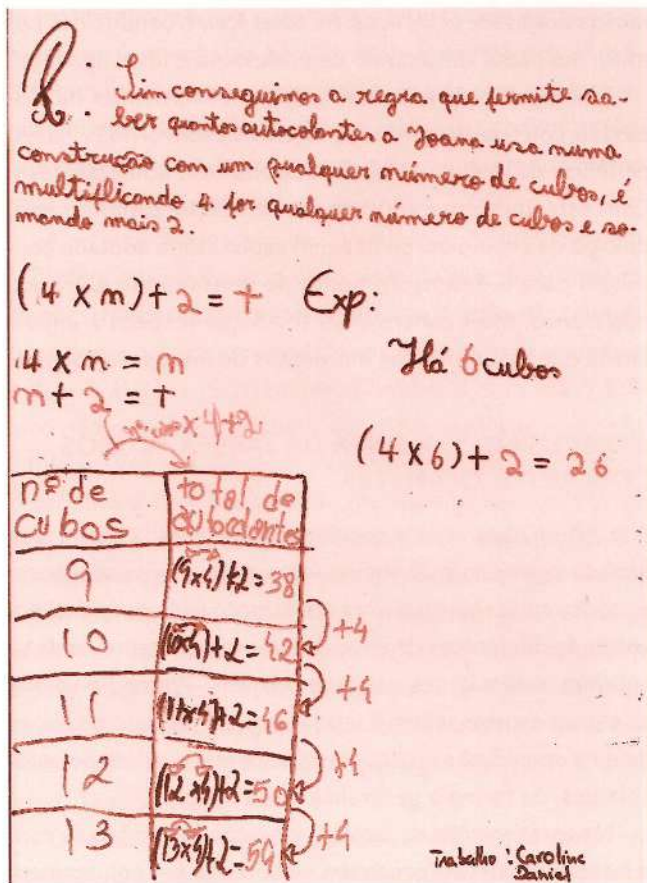 R: Sim conseguimos a regra que permite sa-
ber quantos autocolantes a Joana usa numa
construção com um qualquer número de cubos, é
multiplicando 4 por qualquer número de cubos e so-
mando mais 2.
(4 x n) + 2 = t Exp:
4 x n = n Há 6 cubos
n + 2 = t
x 4 + 2
(4 x 6) + 2 = 26
nº de total de
cubos autocolantes
9 (9x4)+2=38
+4
10 (10x4)+2=42
+4
11 (11x4)+2=46
+4
12 (12x4)+2=50
+4
13 (13x4)+2=54
Trabalho: Caroline
Daniel